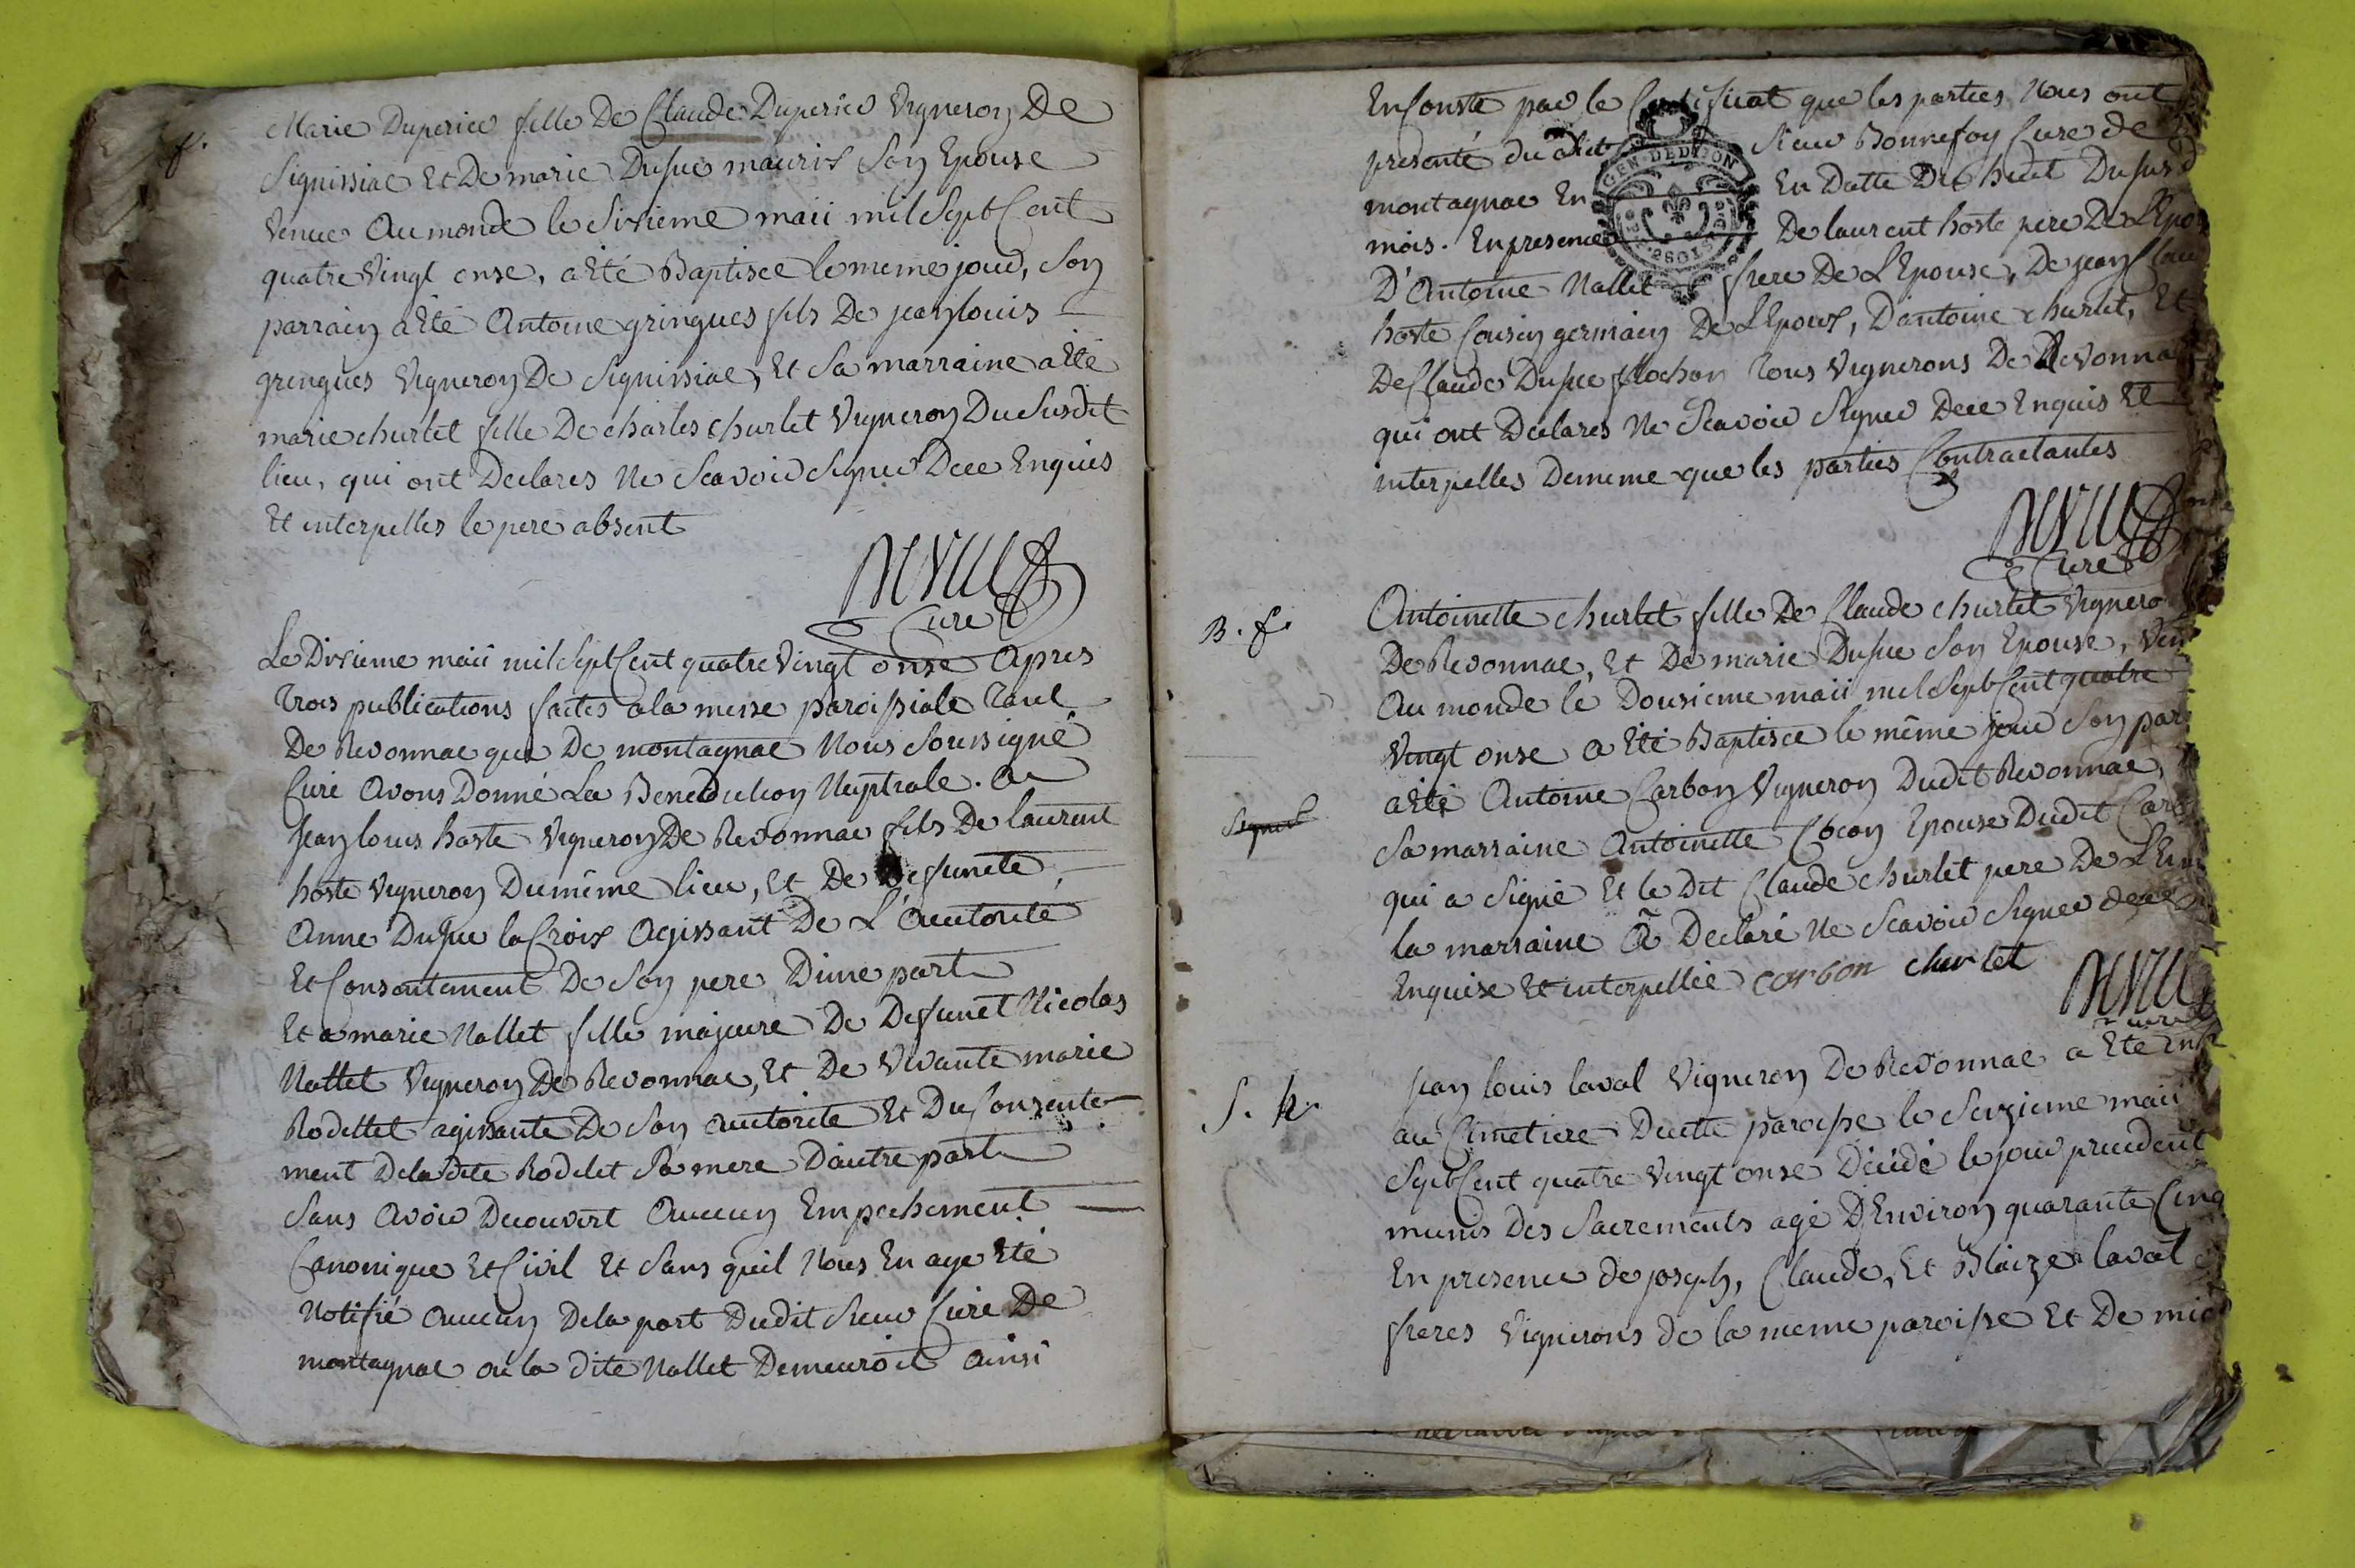 f.
Marie Duperier fille De Claude Duperier Vigneron De
Signissiac Et De marie Dusuc mauris Son Epouse
Venue Au monde le Sixieme maii mil Sept Cent
quatre Vingt onse, a Eté Baptisée le meme jour, Son
parrain a Eté Antoine gringues fils De jean louis
gringues Vigneron De Signissiac, Et Sa marraine a Eté
marie churlet fille De charles churlet Vigneron Du Susdit
lieu, qui ont Declarés Ne Scavoir Signer Dece Enquis
Et interpellés le pere absent
Curé
Le Dixieme maii mil Sept Cent quatre Vingt onse Apres
Trois publications faites a la messe paroissiale Tant
De Revonnac que De montagnac Nous Soussigné
Curé Avons Donné La Benediction Nuptiale. a
Jean louis hoste Vigneron De Revonnac fils De laurent
hoste Vigneron Du même lieu, Et De Defuncte
Anne Dusuc la Croix Agissant De L'Auctorité
Et Consentement De Son pere D'une part
Et a marie Nallet fille majeure De Defunct Nicolas
Nallet Vigneron De Revonnac, Et De Vivante marie
Rodellet agissante De Son auctorité Et Du Consente-
ment De la dite Rodelet Sa mere D'autre part
Sans Avoir Decouvert Aucun Empechement
Canonique Et Civil Et Sans qu'il Nous En aye Eté
Notifié Aucun De la part Dudit Sieur Curé De
montagnac ou la dite Nallet Demeuroit ainsi
En Conste par le Certificat que les parties Nous ont
presenté du dit Sieur Bonnefoy Curé de
montagnac En En Datte Du huit Du susd
mois. En presence De laurent hoste pere De L'Epou
GEN. DE DIJON
D'Antoine Nallet frere De L'Epouse, De jean Clau
hoste Cousin germain De L'Epoux, D'antoine churlet, Et
De Claude Dusuc Tous Vignerons De Revonna
qui ont Declarés Ne Scavoir Signer Dece Enquis Et
interpellés De meme que les parties Contractantes
Curé
B. f.
Antoinette churlet fille De Claude churlet Vignero
De Revonnac, Et De marie Dusuc Son Epouse, Ven
Au monde le Dousieme maii mil Sept Cent quatre
Vingt onse a Eté Baptisée le même jour Son par
a Eté Antoine Carbon Vigneron Dudit Revonnac,
Sa marraine Antoinette Epouse Dudit Carb
qui a Signé Et le Dit Claude churlet pere De L'En
la marraine a Declaré Ne Scavoir Signer dece
Enquise Et interpellée carbon churlet
Curé
S. h.
Jean louis laval Vigneron De Revonnac a Eté En
au Cimetiere Decette paroisse le Seizieme maii
Sept Cent quatre Vingt onse Décédé le jour precedent
munis Des Sacrements agé D'Environ quarante Cinq
En presence de joseph, Claude, Et Blaize laval
freres Vignerons de la meme paroisse Et De mic